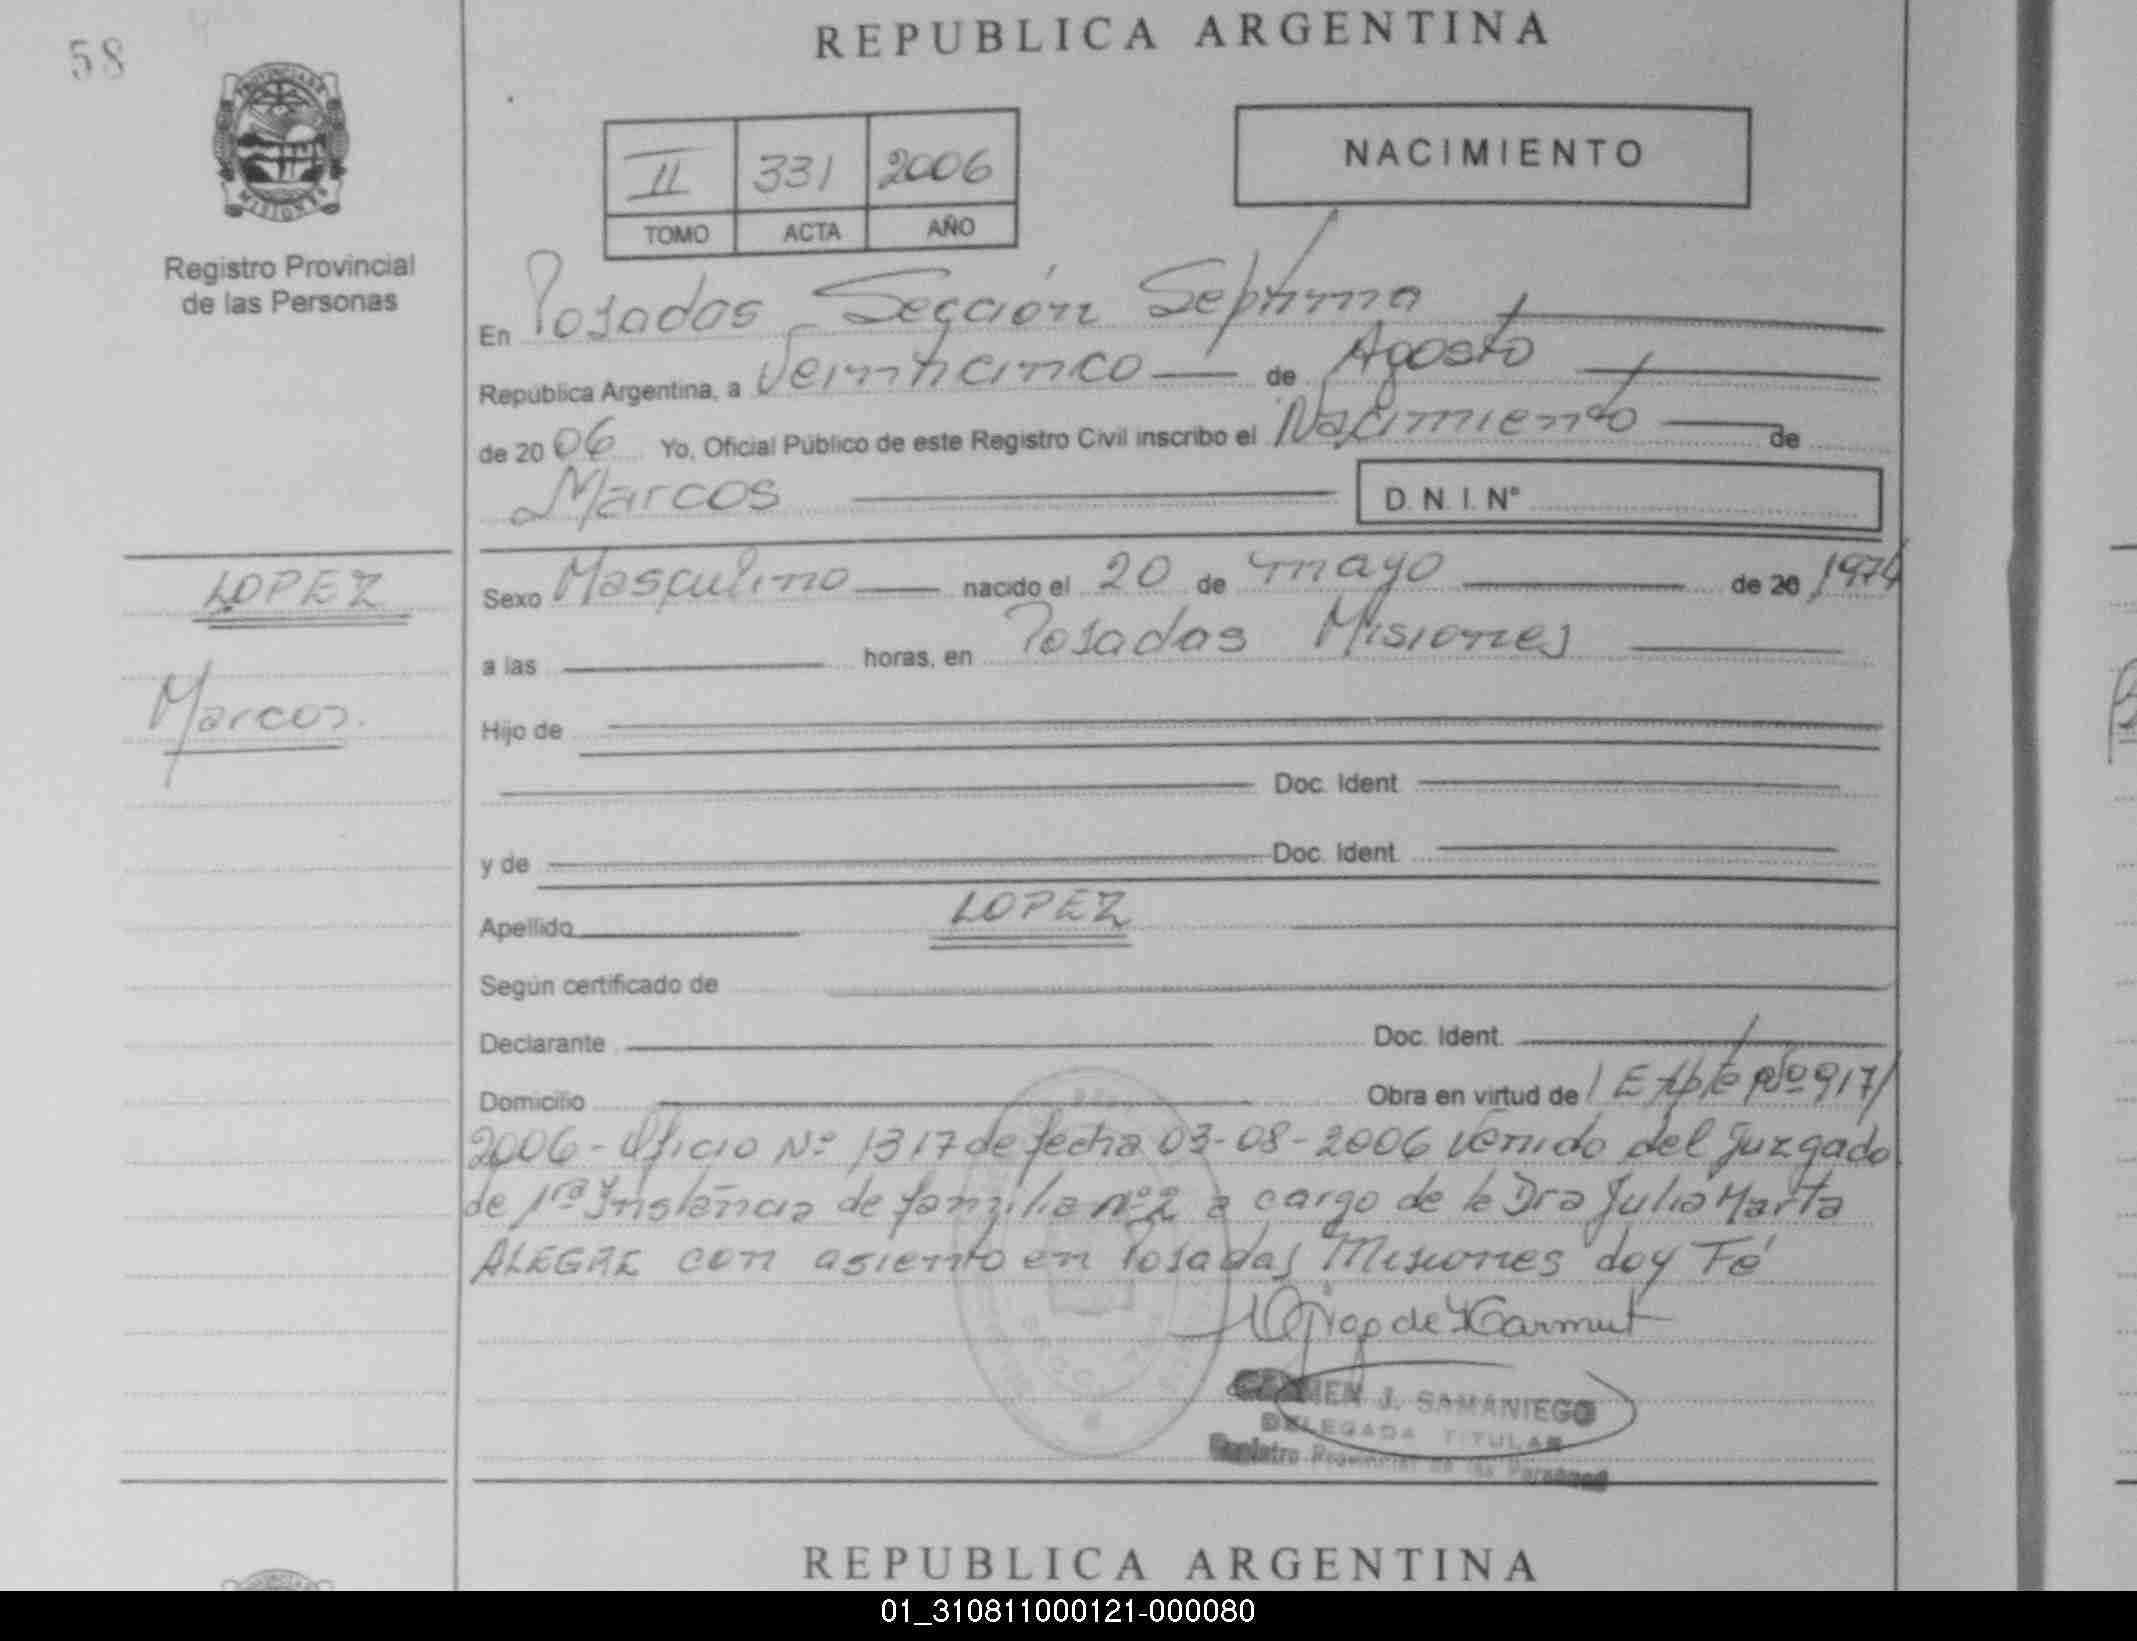 58
REPUBLICA ARGENTINA
PROVINCIA DE
MISIONES
Registro Provincial
de las Personas
II 331 2006
TOMO ACTA AÑO
NACIMIENTO
En Posadas Sección Septima
República Argentina, a Veinticinco de Agosto
de 2006 Yo, Oficial Público de este Registro Civil inscribo el Nacimiento de
Marcos D. N. I. N°
LOPEZ
Marcos.
Sexo Masculino nacido el 20 de mayo de 20 1974
a las horas, en Posadas Misiones
Hijo de
Doc. Ident.
y de Doc. Ident.
Apellido LOPEZ
Según certificado de
Declarante Doc. Ident.
Domicilio Obra en virtud de Expte Nº 917/
2006 - Oficio Nº 1317 de fecha 03-08-2006 venido del Juzgado
de 1ra Instancia de familia nº2 a cargo de la Dra Julia Marta
ALEGRE con asiento en Posadas Misiones doy Fé
CARMEN J. SAMANIEGO
DELEGADA TITULAR
Registro Provincial de las Personas
REPUBLICA ARGENTINA
01_310811000121-000080